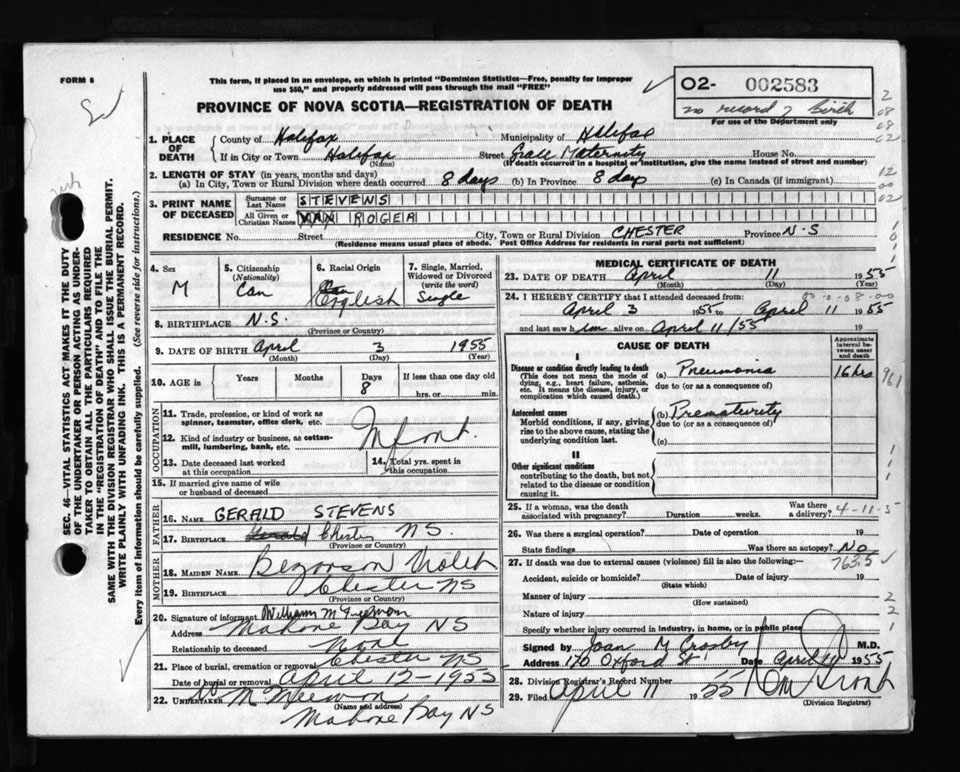 FORM 6
This form, if placed in an envelope, on which is printed "Dominion Statistics—Free, penalty for improper
use $50," and properly addressed will pass through the mail "FREE"
PROVINCE OF NOVA SCOTIA—REGISTRATION OF DEATH
02- 002583
no record of birth
For use of the Department only
1. PLACE OF DEATH
County of Halifax Municipality of Halifax
If in City or Town Halifax Street Grace Maternity House No.
(Name) (If death occurred in a hospital or institution, give the name instead of street and number)
2. LENGTH OF STAY (in years, months and days)
(a) In City, Town or Rural Division where death occurred 8 days (b) In Province 8 days (c) In Canada (if immigrant)
3. PRINT NAME OF DECEASED
Surname or Last Name STEVENS
All Given or Christian Names ROGER
RESIDENCE No. Street City, Town or Rural Division CHESTER Province N-S
(Residence means usual place of abode. Post Office Address for residents in rural parts not sufficient)
4. Sex M
5. Citizenship (Nationality) Can
6. Racial Origin English
7. Single, Married, Widowed or Divorced (write the word) Single
8. BIRTHPLACE N.S.
(Province or Country)
9. DATE OF BIRTH April 3 1955
(Month) (Day) (Year)
10. AGE in Years Months Days 8 If less than one day old
hrs. or min.
OCCUPATION
11. Trade, profession, or kind of work as
spinner, teamster, office clerk, etc.
Infant.
12. Kind of industry or business, as cotton-
mill, lumbering, bank, etc.
13. Date deceased last worked
at this occupation
14. Total yrs. spent in
this occupation
15. If married give name of wife
or husband of deceased
FATHER
16. NAME GERALD STEVENS
17. BIRTHPLACE Chester NS.
(Province or Country)
MOTHER
18. MAIDEN NAME Bezanson Violet
19. BIRTHPLACE Chester NS
(Province or Country)
20. Signature of informant William M
Address Mahone Bay NS
Relationship to deceased None
21. Place of burial, cremation or removal Chester NS
Date of burial or removal April 12-1955
22. UNDERTAKER
(Name and address)
Mahone Bay NS
MEDICAL CERTIFICATE OF DEATH
23. DATE OF DEATH April 11 1955
(Month) (Day) (Year)
24. I HEREBY CERTIFY that I attended deceased from:
April 3 1955 to April 11 1955
and last saw him alive on April 11/55 19
CAUSE OF DEATH
Approximate interval between onset and death
I
Disease or condition directly leading to death
(This does not mean the mode of
dying, e.g., heart failure, asthenia,
etc. It means the disease, injury, or
complication which caused death.)
(a) Pneumonia 16 hrs
due to (or as a consequence of)
Antecedent causes
Morbid conditions, if any, giving
rise to the above cause, stating the
underlying condition last.
(b) Prematurity
due to (or as a consequence of)
(c)
II
Other significant conditions
contributing to the death, but not
related to the disease or condition
causing it.
25. If a woman, was the death
associated with pregnancy? Duration weeks. Was there
a delivery?
4-11-5
26. Was there a surgical operation? Date of operation 19
State findings Was there an autopsy? No
763.5
27. If death was due to external causes (violence) fill in also the following:—
Accident, suicide or homicide? Date of injury 19
(State which)
Manner of injury
(How sustained)
Nature of injury
Specify whether injury occurred in industry, in home, or in public place
Signed by Joan M Crosby M.D.
Address 170 Oxford St Date April 11 1955
28. Division Registrar's Record Number
29. Filed April 11 1955
(Division Registrar)
SEC. 46 VITAL STATISTICS ACT MAKES IT THE DUTY
OF THE UNDERTAKER OR PERSON ACTING AS UNDER-
TAKER TO OBTAIN ALL THE PARTICULARS REQUIRED
IN THE "REGISTRATION OF DEATH" AND TO FILE THE
SAME WITH THE DIVISION REGISTRAR WHO SHALL ISSUE THE BURIAL PERMIT.
WRITE PLAINLY WITH UNFADING INK. THIS IS A PERMANENT RECORD.
Every item of information should be carefully supplied. (See reverse side for instructions.)